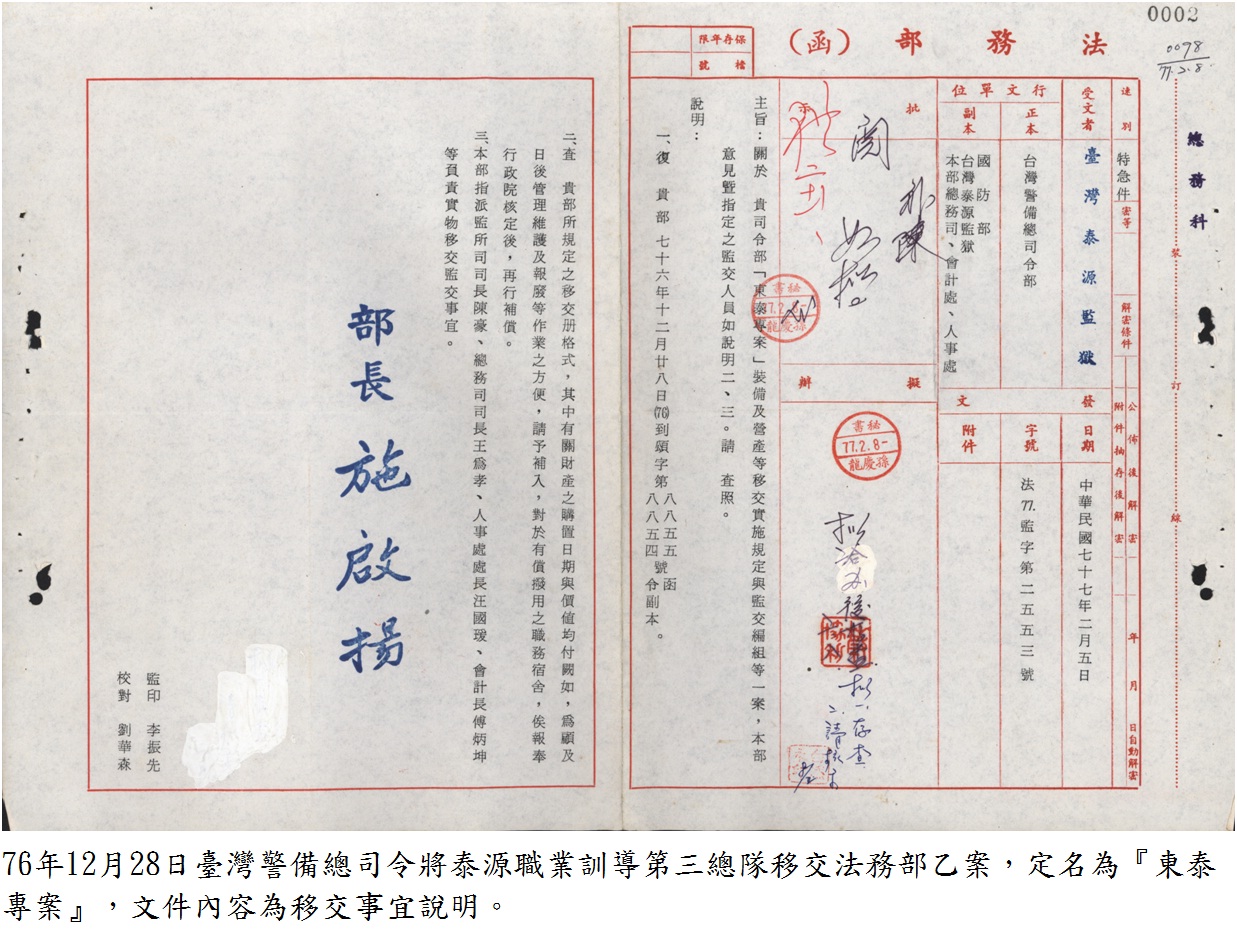 0002
0098
77.2.8.
總務科
裝
訂
線
法務部（函）
保存年限
檔號
速別
特急件
密等
解密條件
公佈後解密
附件抽存後解密
年　月　日自動解密
受文者
臺灣泰源監獄
行文單位
正本
台灣警備總司令部
副本
國防部
台灣泰源監獄
本部總務司、會計處、人事處
發文
日期
中華民國七十七年二月五日
字號
法77.監字第二五五三號
附件
批示
閱
擬辦
秘書
77.2.8-
孫慶龍
秘書
孫慶龍
主旨：關於　貴司令部「東泰專案」裝備及營產等移交實施規定與監交編組等一案，本部
意見暨指定之監交人員如說明二、三。請　查照。
說明：
一、復　貴部七十六年十二月廿八日(76)到頌字第八八五五號函
八八五四號令副本。
二、查　貴部所規定之移交册格式，其中有關財產之購置日期與價值均付闕如，爲顧及
日後管理維護及報廢等作業之方便，請予補入，對於有償撥用之職務宿舍，俟報奉
行政院核定後，再行補償。
三、本部指派監所司司長陳豪、總務司司長王爲孝、人事處處長汪國瑗、會計長傅炳坤
等負責實物移交監交事宜。
部長施啟揚
監印　李振先
校對　劉華森
76年12月28日臺灣警備總司令將泰源職業訓導第三總隊移交法務部乙案，定名為『東泰
專案』，文件內容為移交事宜說明。